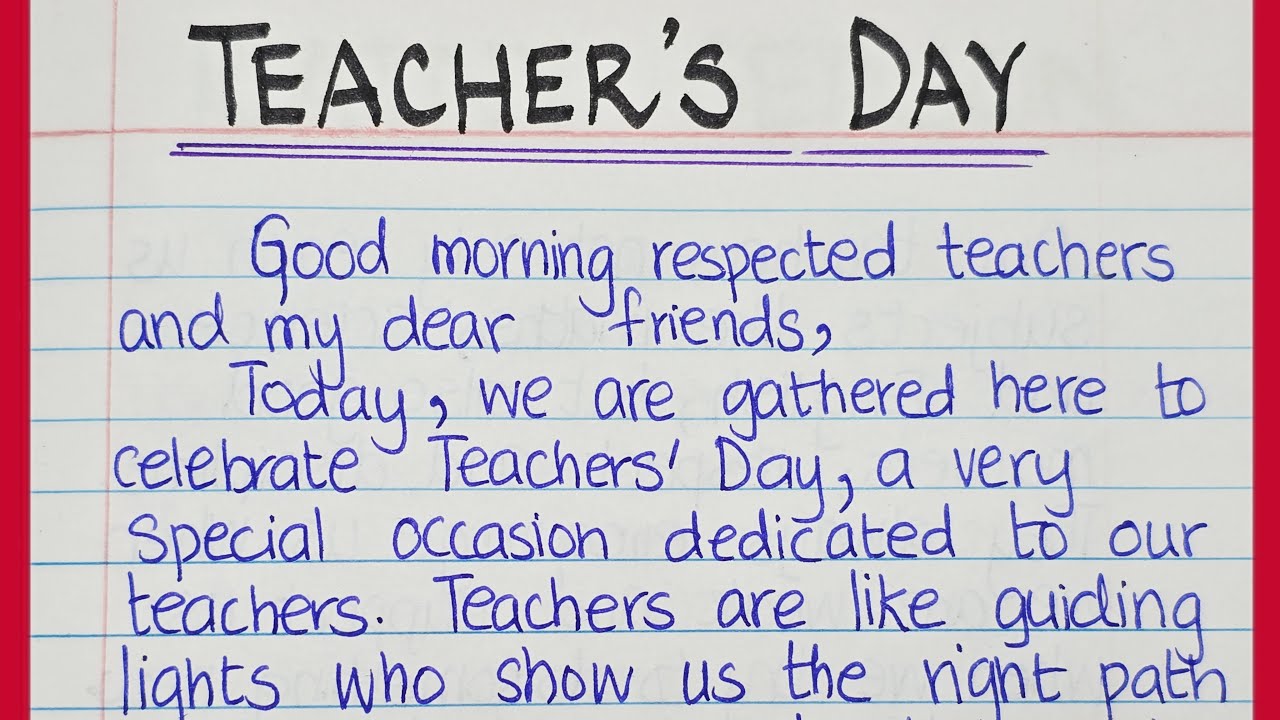 TEACHER'S DAY
Good morning respected teachers
and my dear friends,
Today, we are gathered here to
celebrate Teachers' Day, a very
special occasion dedicated to our
teachers. Teachers are like guiding
lights who show us the right path